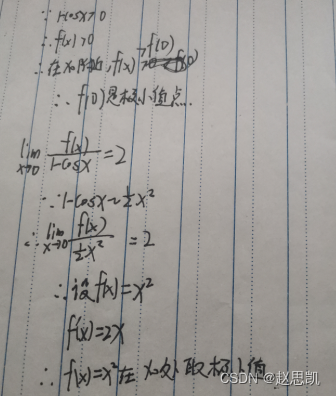 ∵ 1-cosx>0
∴ f(x)>0
∴ 在x0附近, f(x)>f(0)
∴ f(0)是极小值点.
lim x→0 f(x)/(1-cosx) = 2
∵ 1-cosx ~ ½x²
∴ lim x→0 f(x)/(½x²) = 2
∴ 设f(x)=x²
f(x)=2x
∴ f(x)=x²在x0处取极小值
CSDN @赵思凯